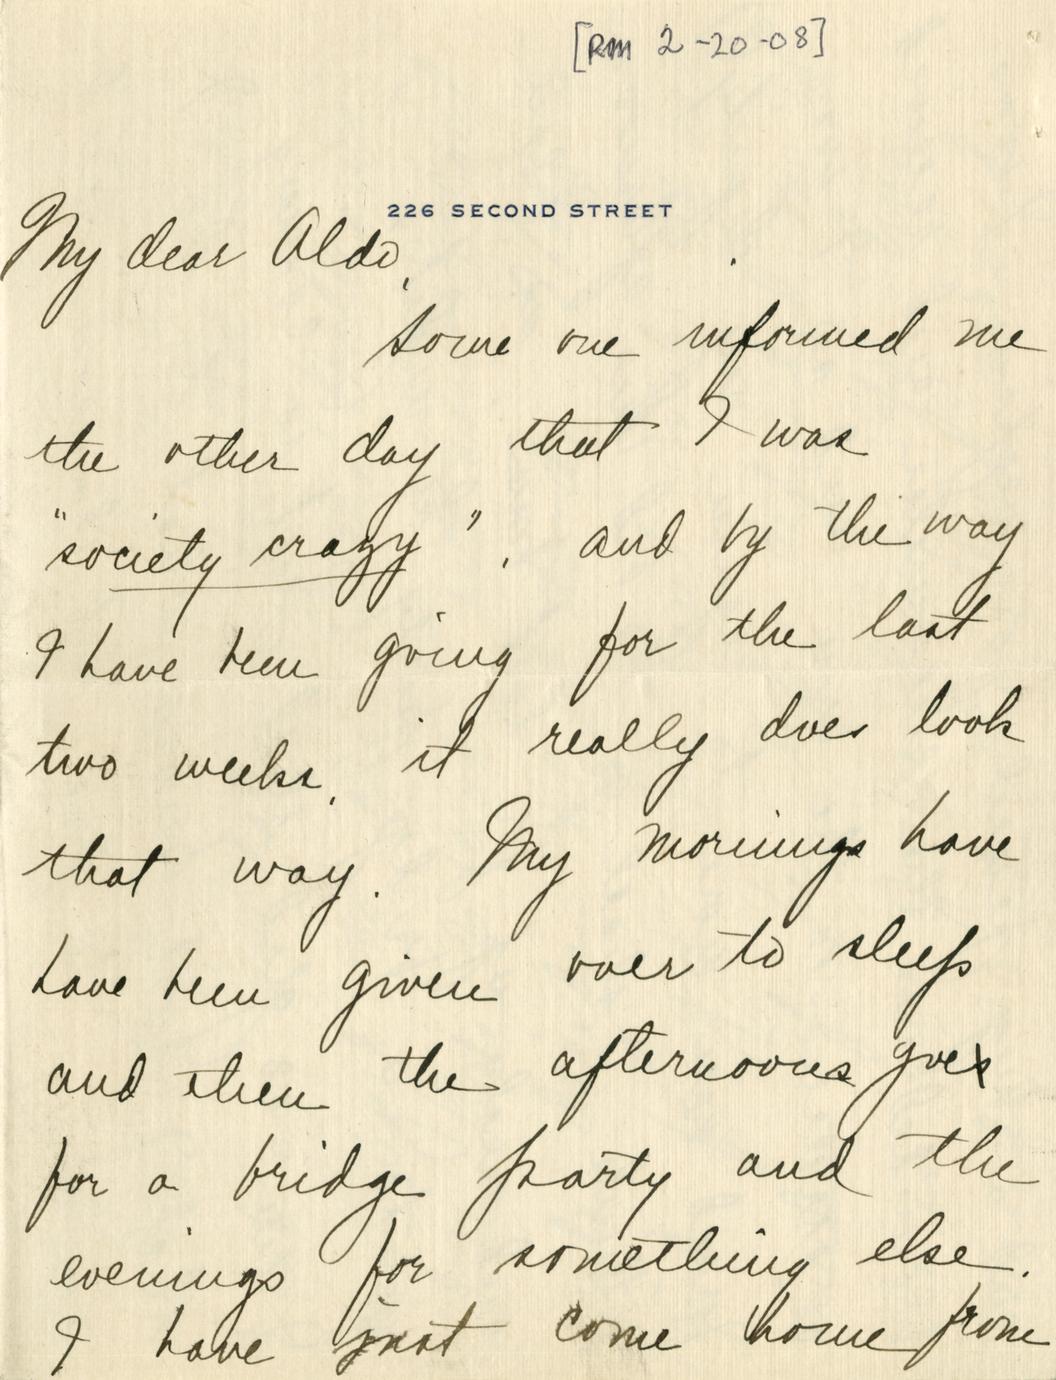 [Rm 2-20-08]
226 SECOND STREET
My dear Aldo,
Some one informed me
the other day that I was
"society crazy", and by the way
I have been going for the last
two weeks, it really does look
that way. My mornings have
have been given over to sleep
and then the afternoons goes
for a bridge party and the
evenings for something else.
I have just come home from